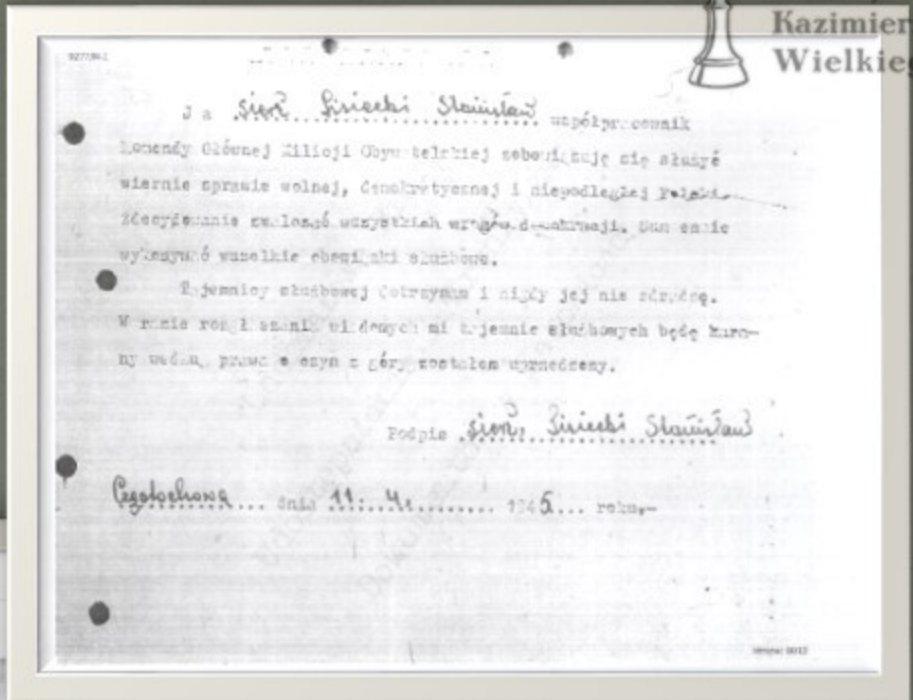 Kazimier
Wielkieg
Ja sierż. Lisiecki Stanisław współpracownik
Komendy Głównej Milicji Obywatelskiej zobowiązuję się służyć
wiernie sprawie wolnej, demokratycznej i niepodległej Polski.
Zdecydowanie zwalczać wszystkich wrogów demokracji. Sumiennie
wykonywać wszelkie obowiązki służbowe.
Tajemnicy służbowej dotrzymam i nigdy jej nie zdradzę.
W razie rozgłaszania wiadomych mi tajemnic służbowych będę kara-
ny według prawa o czym z góry zostałem uprzedzony.
Podpis sierż. Lisiecki Stanisław
Częstochowa dnia 11. 4. 1945 roku,-